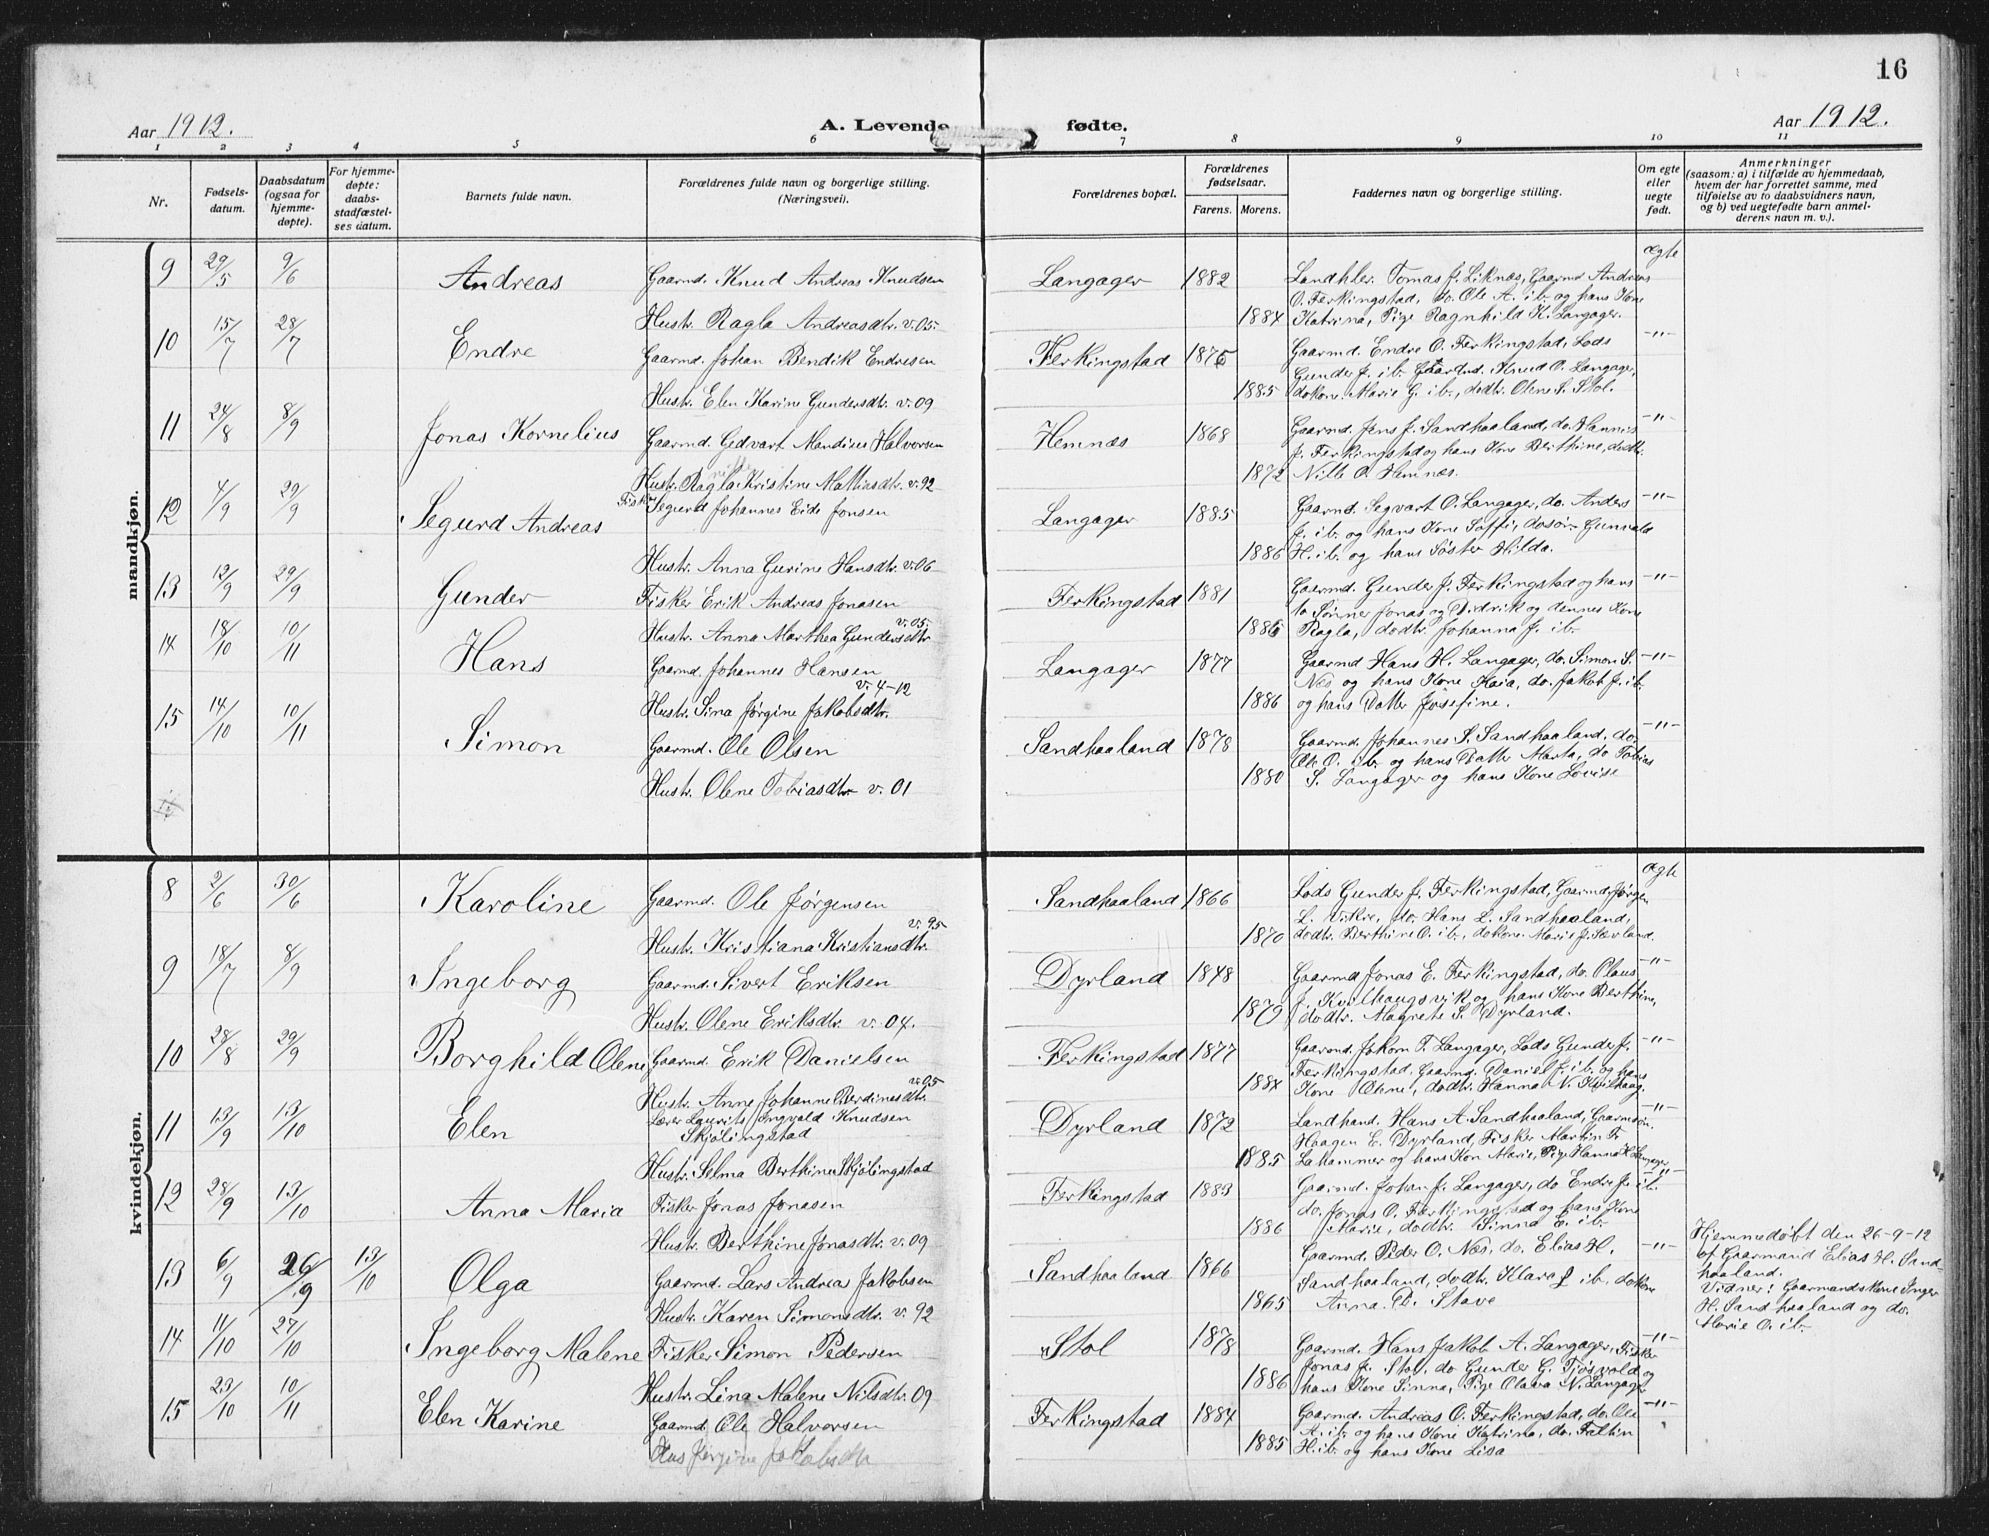 16
Aar 1912.
A. Levende fødte.
Aar 1912.
1 2 3 4 5 6 7 8 9 10 11
Nr.
Fødsels-
datum.
Daabsdatum
(ogsaa for
hjemme-
døpte).
For hjemme-
døpte:
daabs-
stadfæstel-
ses datum.
Barnets fulde navn.
Forældrenes fulde navn og borgerlige stilling.
(Næringsvei).
Forældrenes bopæl.
Forældrenes
fødselsaar.
Farens. Morens.
Faddernes navn og borgerlige stilling.
Om egte
eller
uegte
født.
Anmerkninger
(saasom: a) i tilfælde av hjemmedaab,
hvem der har forrettet samme, med
tilføielse av to daabsvidners navn,
og b) ved uegtefødte barn anmel-
derens navn m. v.).
mandkjøn.
9 29/5 9/6 Andreas
Gaarmd. Knud Andreas Knudsen
Hustr. Ragla Andreasdtr. v. 05
Langager 1882 1884
Landhler. Tomas J. Liknæs, Gaarmd Andreas
O. Ferkingstad, do. Ole A. ib. og hans Kone
Katrina, Pige Ragnhild K. Langager.
ægte
10 15/7 28/7 Endre
Gaarmd. Johan Bendik Endresen
Hustr. Elen Karine Gundersdtr. v. 09
Ferkingstad 1875 1885
Gaarmd. Endre O. Ferkingstad, Lods
Gunder J. ib. Gaarmd. Knud O. Langager,
dokone. Marie G. ib., dodtr. Olene S. Stol.
-"-
11 24/8 8/9 Jonas Kornelius
Gaarmd. Gedvart Mandius Halvorsen
Hustr. Ragla Kristine Mattiasdtr. v. 92
Hemnæs 1868 1872
Gaarmd. Jens J. Sandhaaland, do. Hannis
J. Ferkingstad og hans Kone Berthine, dodtr.
Nille O. Hemnæs.
-"-
12 4/9 29/9 Segurd Andreas
Fisk. Segurd Johannes Eide Jonsen
Hustr. Anna Gurine Hansdtr. v. 06
Langager 1885 1886
Gaarmd. Segvart O. Langager, do. Anders
J. ib. og hans Kone Soffi, dosøn Gunvald
H. ib. og hans Søster Hilda.
-"-
13 12/9 29/9 Gunder
Fisker Erik Andreas Jonasen
Hustr. Anna Marthea Gundersdtr v. 05.
Ferkingstad 1881 1886
Gaarmd. Gunder J. Ferkingstad og hans
to Sønner Jonas og Didrik og dennes Kone
Ragla, dodtr. Johanna J. ib.
-"-
14 18/10 10/11 Hans
Gaarmd. Johannes Hansen
Hustr. Sina Jørgine Jakobsdtr. v. 4-12
Langager 1877 1886
Gaarmd Hans H. Langager, do. Simon S.
Nes og hans Kone Kaia, do. Jakob J. ib.
og hans Datter Josefine.
-"-
15 14/10 10/11 Simon
Gaarmd. Ole Olsen
Hustr. Olene Tobiasdtr v. 01
Sandhaaland 1878 1880
Gaarmd. Johannes S. Sandhaaland, do.
Ole O. ib. og hans Datter Marta, do Tobias
S. Langager og hans Kone Lovise
-"-
kvindekjøn.
8 2/6 30/6 Karoline
Gaarmd. Ole Jørgensen
Hustr. Kristiana Kristiansdtr. v. 95
Sandhaaland 1866 1870
Lods Gunder J. Ferkingstad, Gaarmd. Jørgen
L. Vikre, do. Hans L. Sandhaaland,
dodtr. Berthine O. ib., dokone. Marie J. Sævland.
ægte
9 18/7 8/9 Ingeborg
Gaarmd. Sivert Eriksen
Hustr. Olene Eriksdtr. v. 04.
Dyrland 1848 1879
Gaarmd Jonas E. Ferkingstad, do. Olaus
J. Kvilhaugsvik og hans Kone Berthine,
dodtr. Magrete S. Dyrland.
-"-
10 28/8 29/9 Borghild Olene
Gaarmd. Erik Danielsen
Hustr. Anne Johanne Berdinesdtr. v. 05
Ferkingstad 1877 1884
Gaarmd. Jakom T. Langager, Lods Gunder J.
Ferkingstad, Gaarmd. Daniel J. ib. og hans
Kone Olene, dodtr. Hanna N. Kvilhaug.
-"-
11 13/9 13/10 Elen
Lærer Laurits Ingvald Knudsen
Skjølingstad
Hustr. Selma Berthine Skjølingstad
Dyrland 1872 1885
Landhand. Hans A. Sandhaaland, Gaarmsøn.
Haagen E. Dyrland, Fisker Martin T.
Lahammer og hans Kon Marie, Pige Hanna H. Langager
-"-
12 28/9 13/10 Anna Maria
Fisker Jonas Jonasen
Hustr. Berthine Jonasdtr. v. 09
Ferkingstad 1883 1886
Gaarmd. Johan J. Langager, do Endre J. ib.
do. Jonas O. Ferkingstad og hans Kone
Marie, dodtr. Sinna E. ib.
-"-
13 6/9 26/9 13/10 Olga
Gaarmd. Lars Andreas Jakobsen
Hustr. Karen Simonsdtr. v. 92
Sandhaaland 1866 1865
Gaarmd. Peder O. Næs, do. Elias H.
Sandhaaland, dodtr. Klara J. ib., dokone
Anna D. Stave
-"-
Hjemmedøbt den 26-9-12
af Gaarmand Elias H. Sand-
haaland.
Vidner: Gaarmandskone Inger
H. Sandhaaland og do.
Marie O. ib.
14 11/10 27/10 Ingeborg Malene
Fisker Simon Pedersen
Hustr. Lina Malene Nilsdtr. 09
Stol 1878 1886
Gaarmd. Hans Jakob A. Langager, Fisker
Jonas J. Stol, do. Gunder G. Tjøsvold og
hans Kone Sinna, Pige Olava N. Langager
-"-
15 23/10 10/11 Elen Karine
Gaarmd. Ole Halvorsen
Hus Jørgine Jakobsdtr
Ferkingstad 1884 1885
Gaarmd. Andreas O. Ferkingstad, do. Ole
A. ib. og hans Kone Katrina, do. Faltin
H. ib. og hans Kone Lisa
-"-